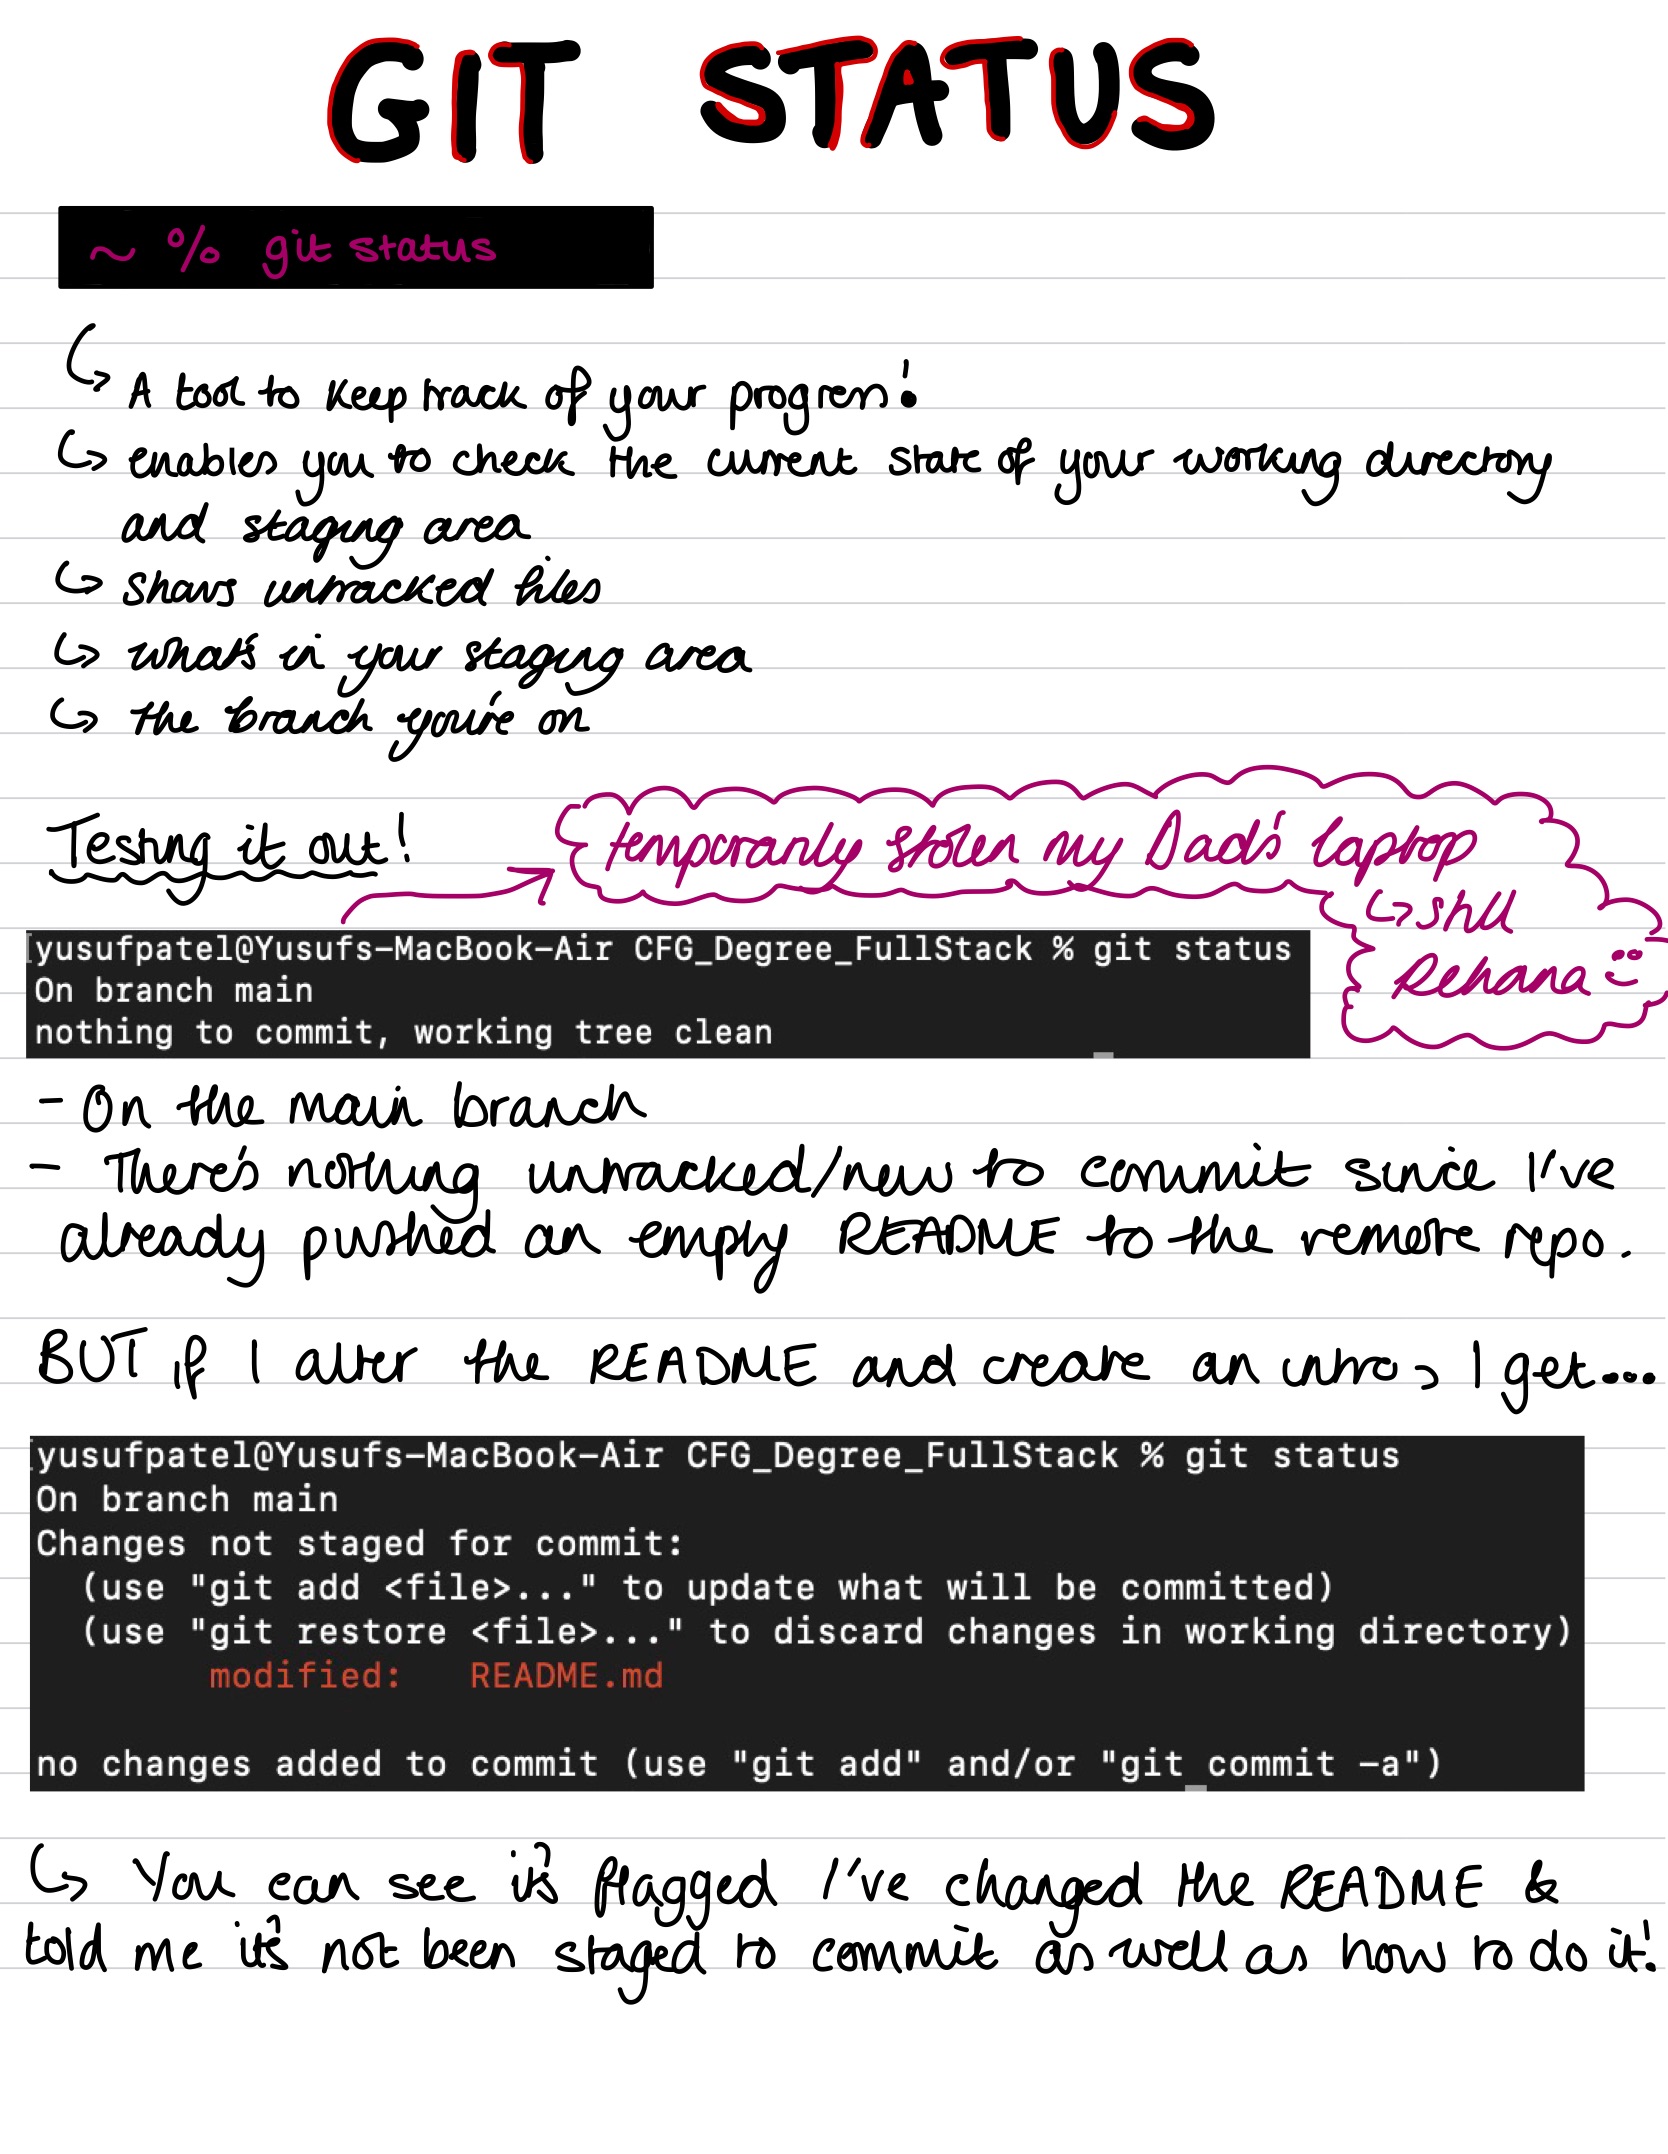 GIT STATUS
~ % git status
↳ A tool to keep track of your progress!
↳ enables you to check the current state of your working directory
and staging area
↳ shows untracked files
↳ what's in your staging area
↳ the branch you're on
Testing it out!
temporarily stolen my Dad's laptop
↳ still
Rehana :)
yusufpatel@Yusufs-MacBook-Air CFG_Degree_FullStack % git status
On branch main
nothing to commit, working tree clean
- On the main branch
- There's nothing untracked/new to commit since I've
already pushed an empty README to the remote repo.
BUT if I alter the README and create an intro, I get...
yusufpatel@Yusufs-MacBook-Air CFG_Degree_FullStack % git status
On branch main
Changes not staged for commit:
  (use "git add <file>..." to update what will be committed)
  (use "git restore <file>..." to discard changes in working directory)
        modified:   README.md
no changes added to commit (use "git add" and/or "git commit -a")
↳ You can see it's flagged I've changed the README &
told me it's not been staged to commit as well as how to do it!